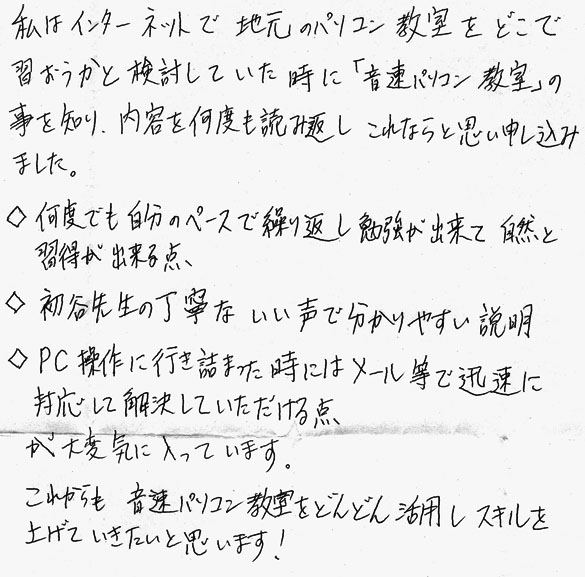 私はインターネットで地元のパソコン教室をどこで
習おうかと検討していた時に「音速パソコン教室」の
事を知り、内容を何度も読み返しこれならと思い申し込み
ました。
◇何度でも自分のペースで繰り返し勉強が出来て自然と
習得が出来る点、
◇初谷先生の丁寧ないい声で分かりやすい説明
◇PC操作に行き詰まった時にはメール等で迅速に
対応して解決していただける点
が大変気に入っています。
これからも音速パソコン教室をどんどん活用しスキルを
上げていきたいと思います!